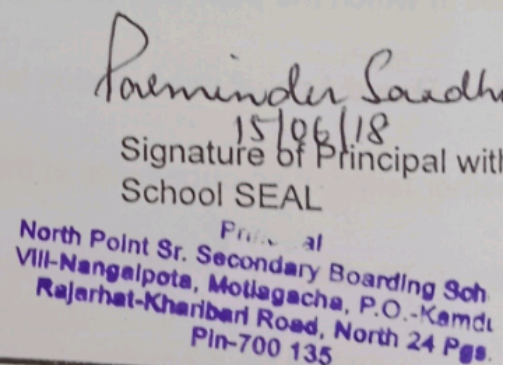 Parminder Sandh
15/06/18
Signature of Principal with
School SEAL
North Point Sr. Secondary Boarding Sch
Vill-Nangalpota, Motiagacha, P.O.-Kamdu
Rajarhat-Kharibari Road, North 24 Pgs.
Pin-700 135